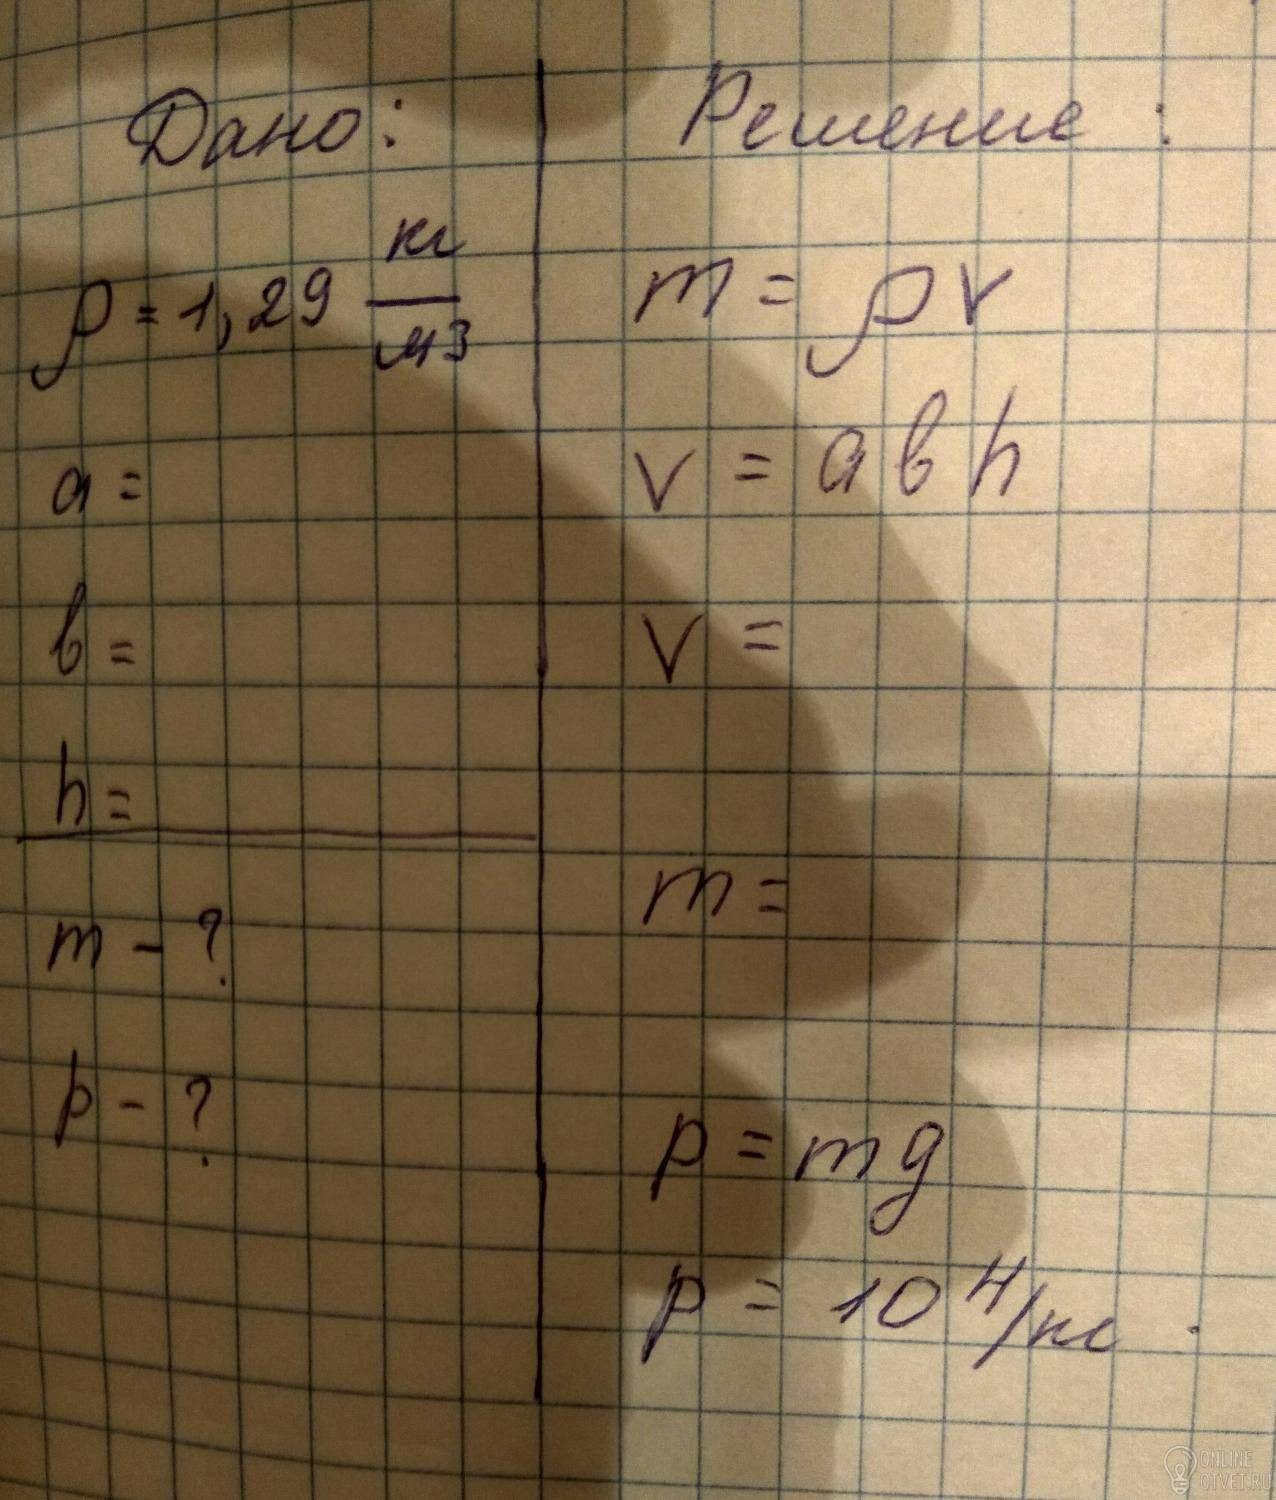 Дано:
ρ = 1,29 кг/м3
a =
b =
h =
m - ?
p - ?
Решение :
m = ρ v
v = a b h
v =
m =
p = mg
p = 10 Н/кг .
ONLINE
OTVET.RU